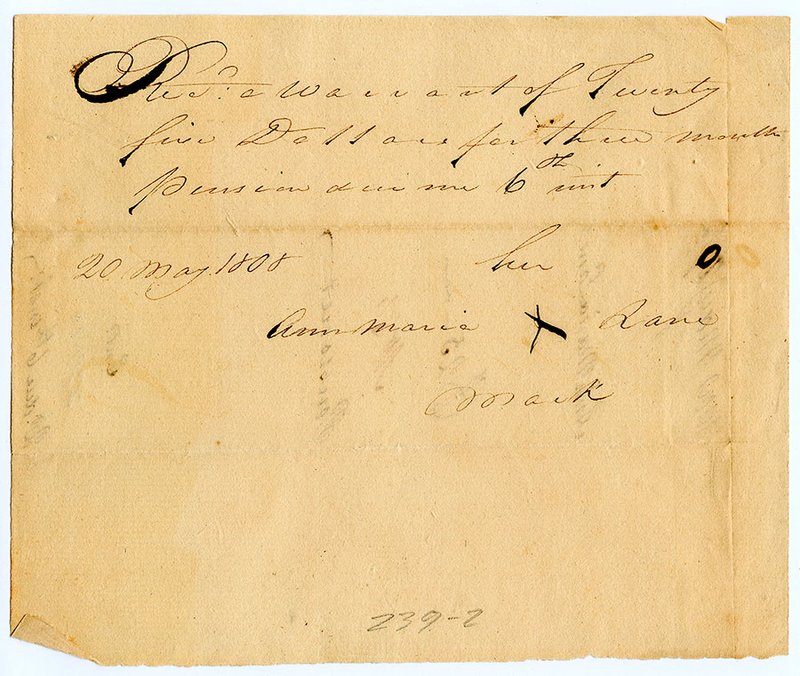 Rec.d a Warrant of Twenty
five Dollars for three months
Pension due me 6th inst
20 May 1808 her
Ann Maria X Lane
Mark
239-2